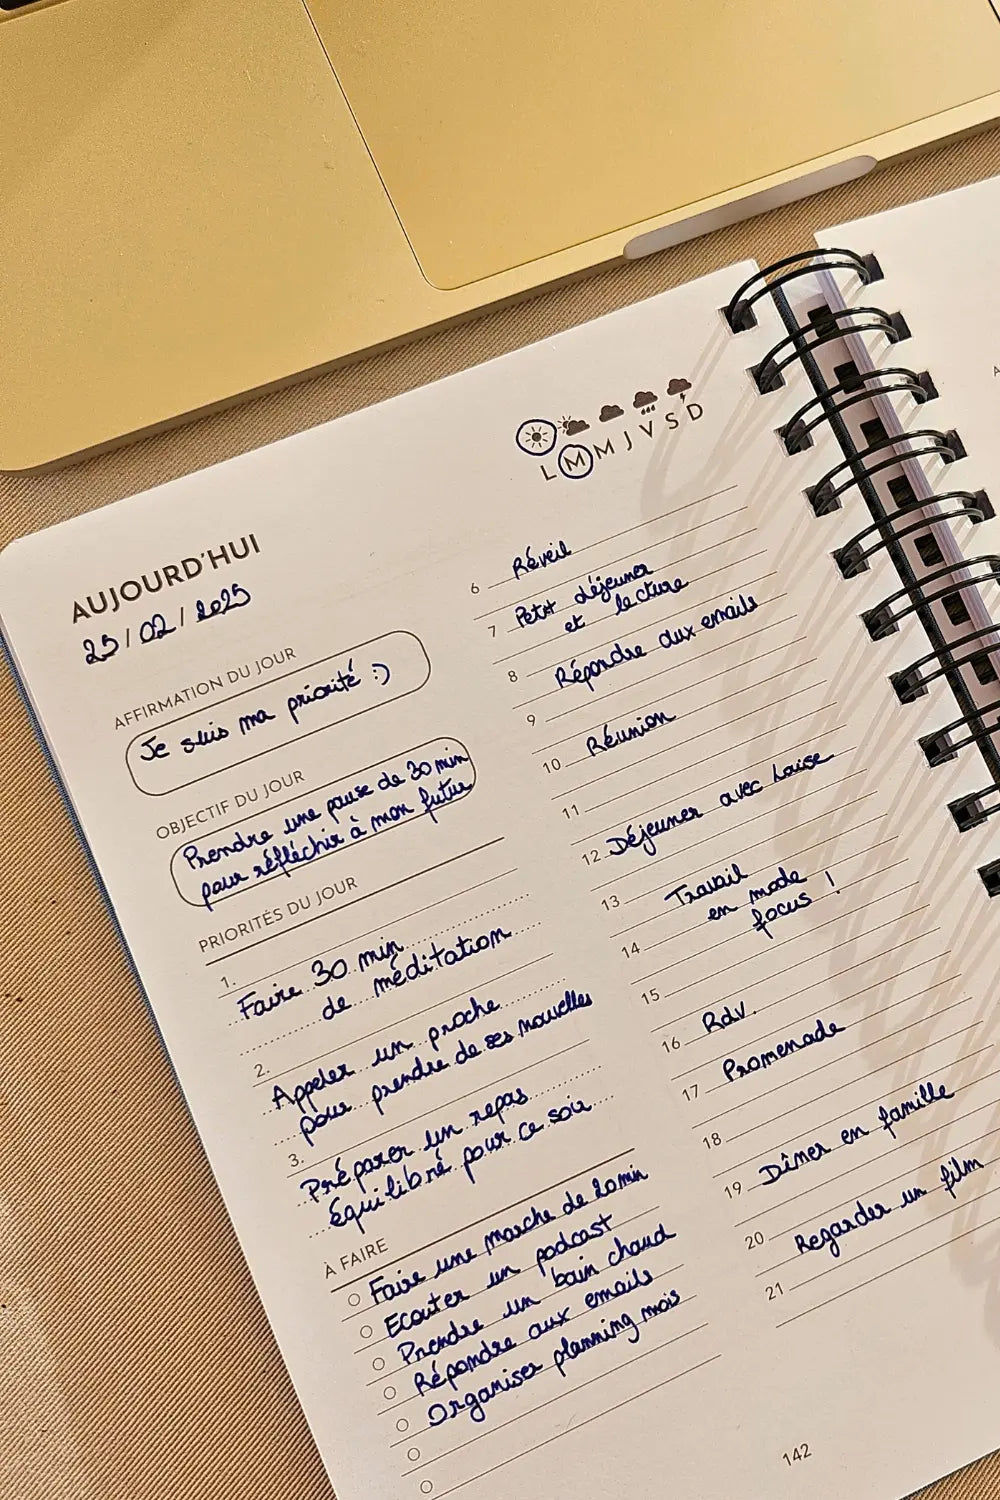 L M M J V S D
AUJOURD'HUI
25/02/2025
AFFIRMATION DU JOUR
Je suis ma priorité :)
OBJECTIF DU JOUR
Prendre une pause de 30 min
pour réfléchir à mon futur
PRIORITÉS DU JOUR
1.
Faire 30 min
de méditation
2.
Appeler un proche
pour prendre de ses nouvelles
3.
Préparer un repas
équilibré pour ce soir
À FAIRE
Faire une marche de 20min
Ecouter un podcast
Prendre un bain chaud
Répondre aux emails
Organiser planning mois
6 Réveil
7 Petit déjeuner
et lecture
8 Répondre aux emails
9
10 Réunion
11
12 Déjeuner avec Louise
13 Travail
en mode
14 focus !
15
16 Rdv.
17 Promenade
18
19 Dîner en famille
20 Regarder un film
21
142